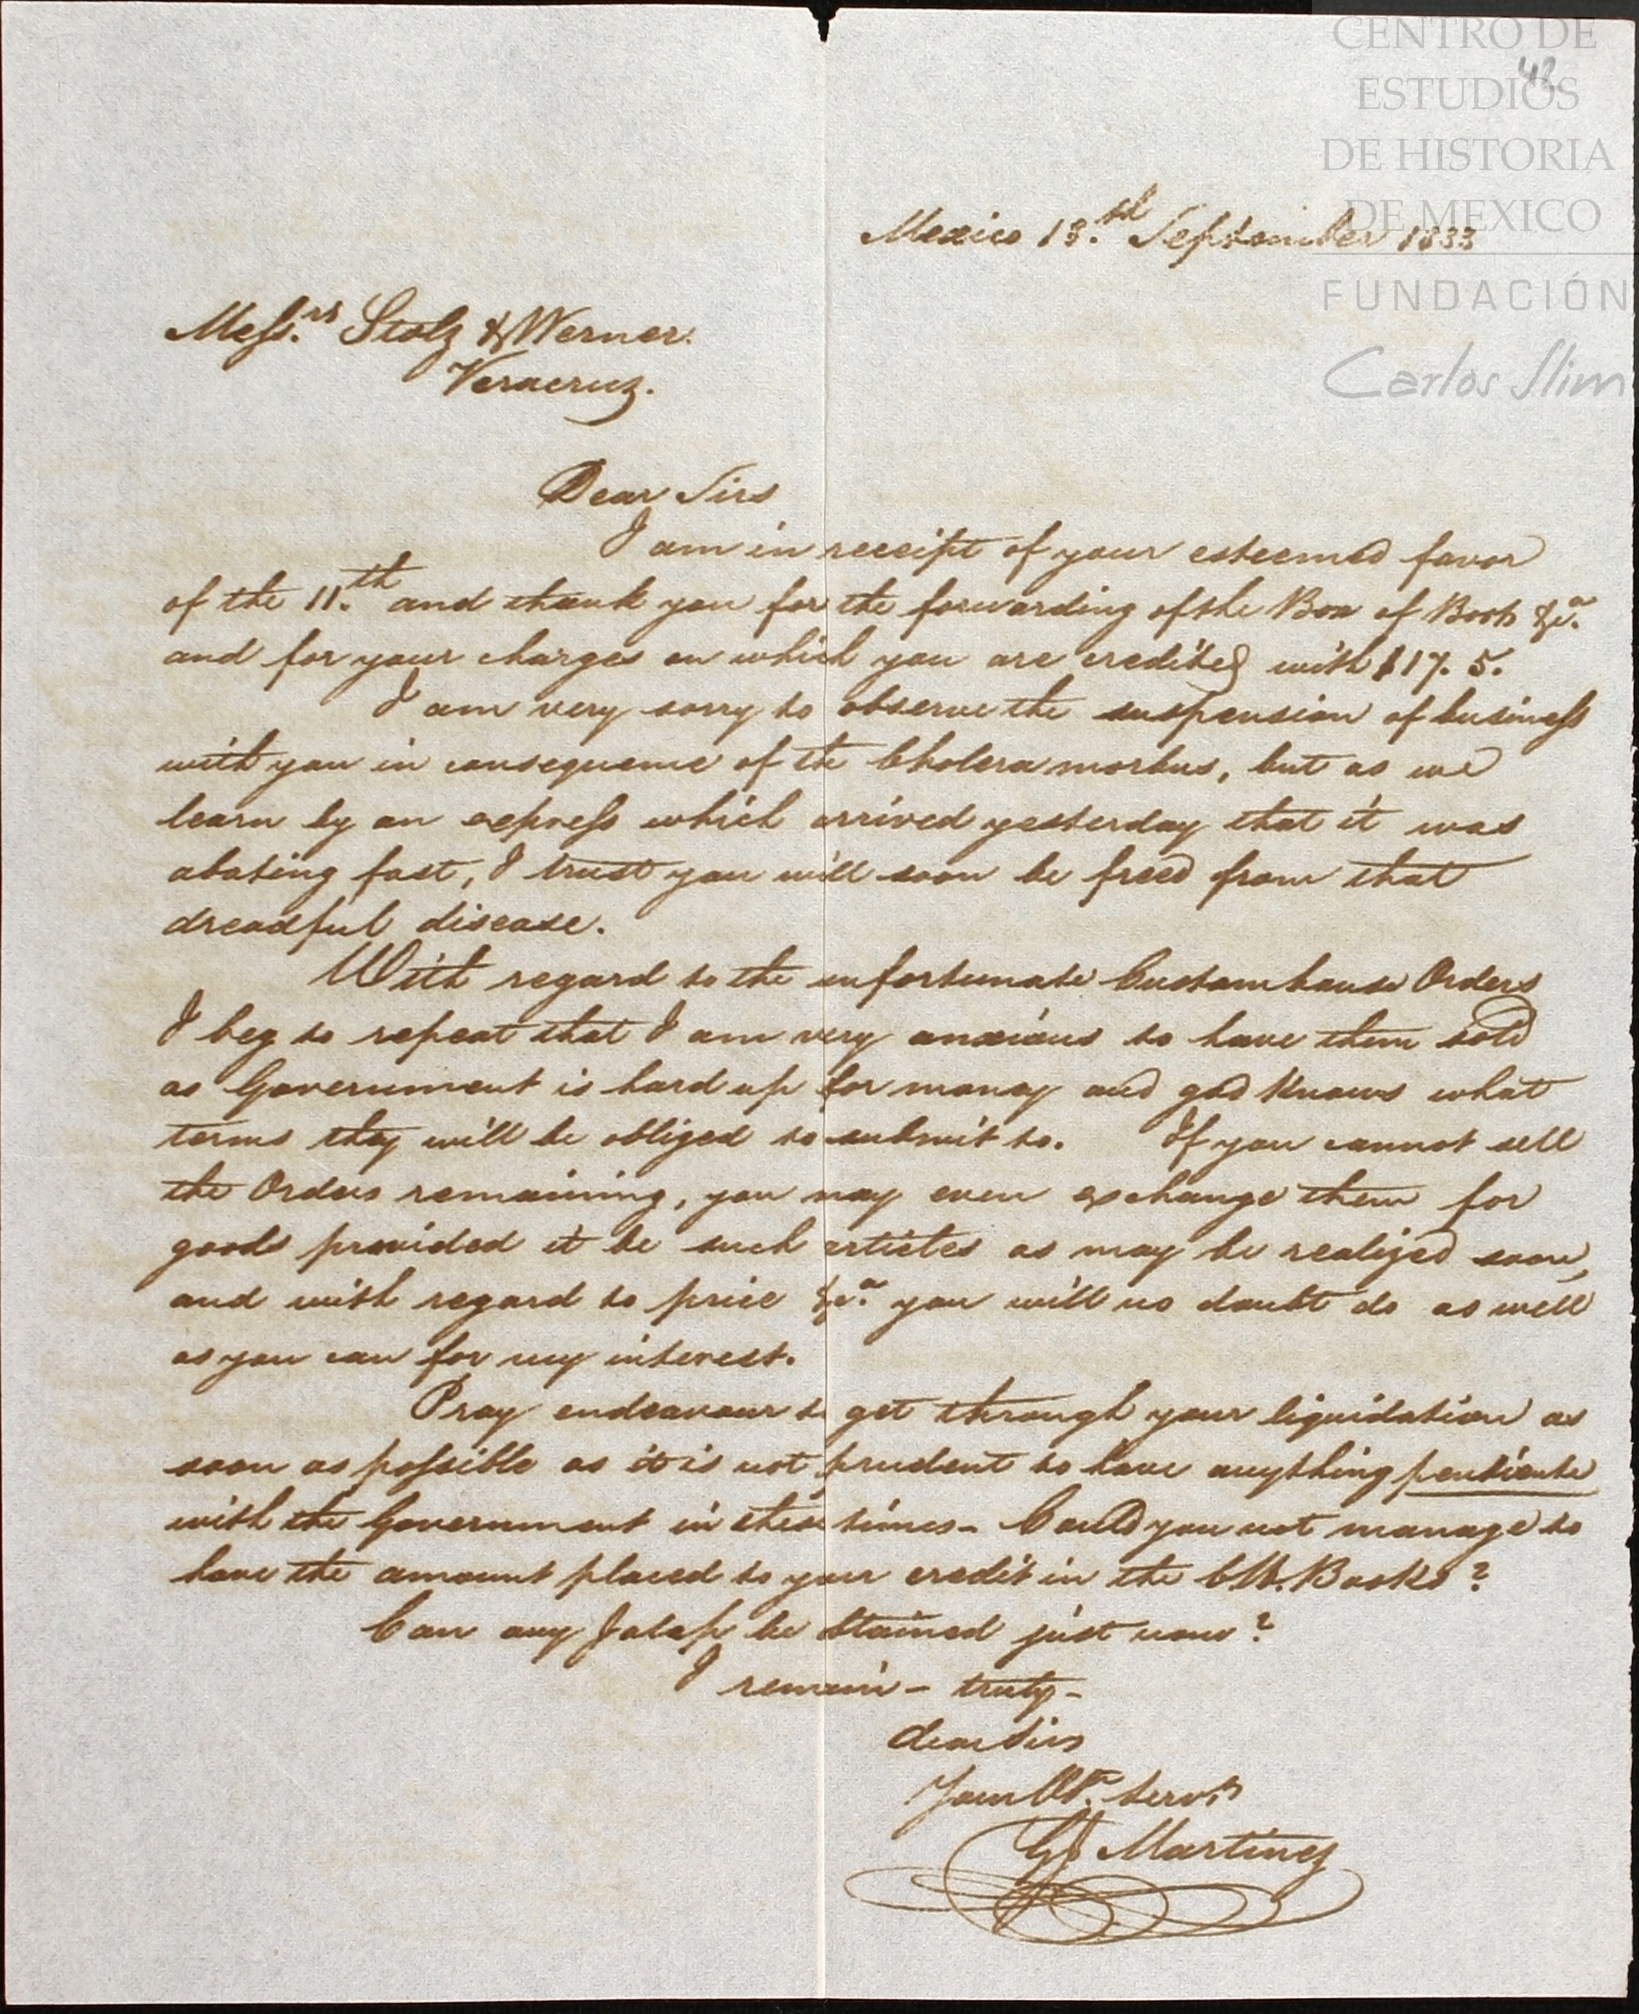 CENTRO DE
ESTUDIOS
DE HISTORIA
DE MEXICO
FUNDACIÓN
Carlos Slim
42
Mexico 13.th September 1833
Mess.rs Stolz & Werner.
Veracruz.
Dear Sirs
I am in receipt of your esteemed favor
of the 11.th and thank you for the forwarding of the Box of Books &c.a
and for your charges on which you are credited with $17. 5.
I am very sorry to observe the suspension of business
with you in consequence of the Cholera morbus, but as we
learn by an express which arrived yesterday that it was
abating fast, I trust you will soon be freed from that
dreadful disease.
With regard to the unfortunate Customhouse Orders
I beg to repeat that I am very anxious to have them sold
as Government is hard up for money and god knows what
terms they will be obliged to submit to. If you cannot sell
the Orders remaining, you may even exchange them for
goods provided it be such articles as may be realized soon,
and with regard to price &c.a you will no doubt do as well
as you can for my interest.
Pray endeavour to get through your liquidation as
soon as possible as it is not prudent to have anything pendiente
with the Government in these times - Could you not manage to
have the amount placed to your credit in the CH. Books?
Can any Jalap be obtained just now?
I remain - truly -
dear Sirs
Your Ob.t Serv.t
Martinez